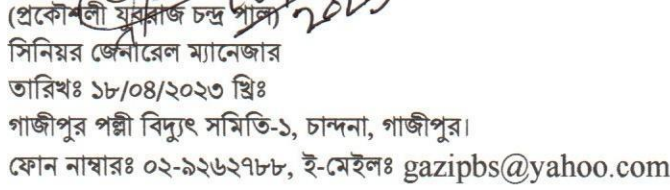 (প্রকৌশলী যুবরাজ চন্দ্র পাল)
সিনিয়র জেনারেল ম্যানেজার
তারিখঃ ১৮/০৪/২০২৩ খ্রিঃ
গাজীপুর পল্লী বিদ্যুৎ সমিতি-১, চান্দনা, গাজীপুর।
ফোন নাম্বারঃ ০২-৯২৬২৭৮৮, ই-মেইলঃ gazipbs@yahoo.com